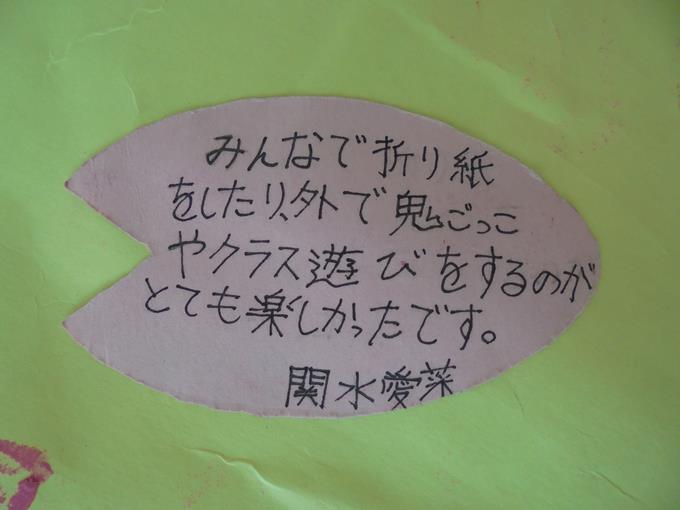 みんなで折り紙
をしたり、外で鬼ごっこ
やクラス遊びをするのが
とても楽しかったです。
関水愛菜